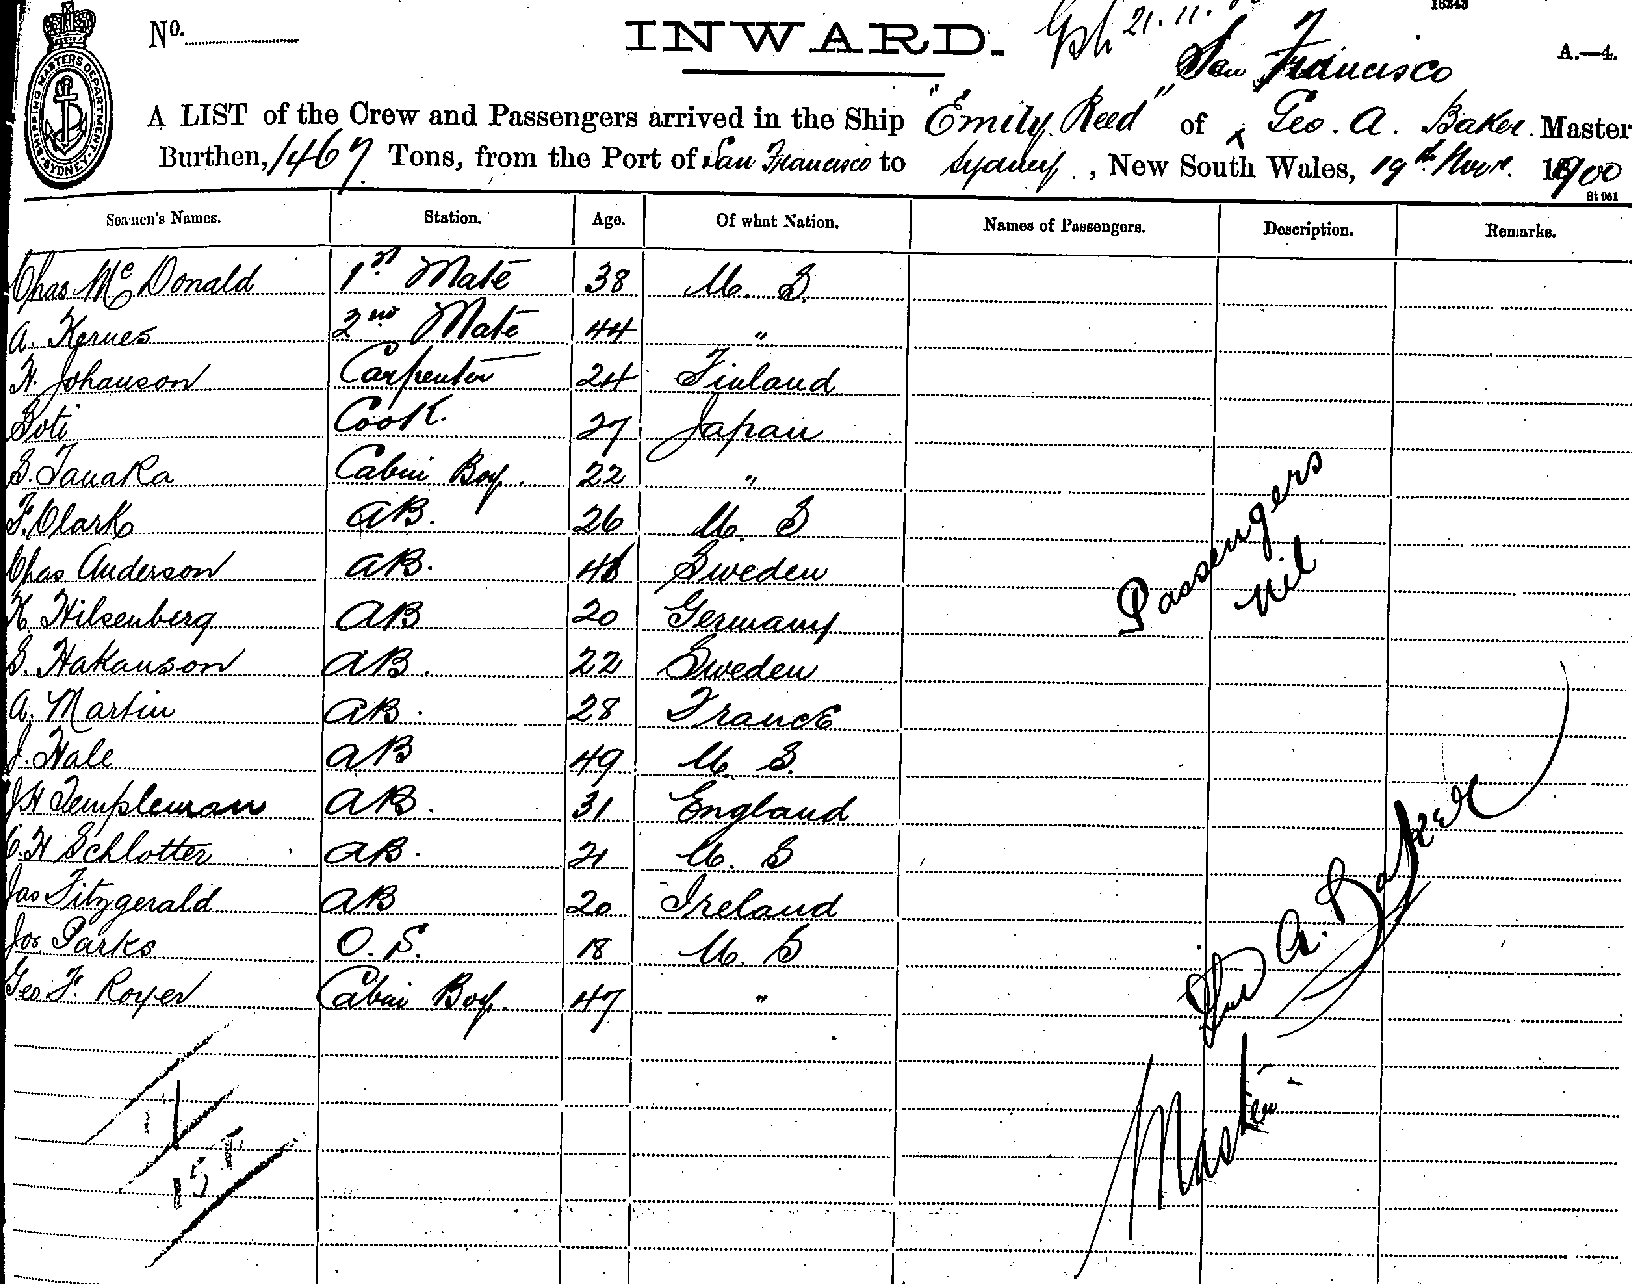 16243
No. INWARD. 21.11.
San Francisco A.—4.
A LIST of the Crew and Passengers arrived in the Ship "Emily Reed" of Geo. A. Baker. Master
Burthen, 1467 Tons, from the Port of San Francisco to Sydney, New South Wales, 19th Novr. 1900
St 061
Seamen's Names. Station. Age. Of what Nation. Names of Passengers. Description. Remarks.
Chas Mc Donald 1st Mate 38 U. S.
A. Kernes 2nd Mate 44 "
H. Johanson Carpenter 24 Finland
Goti Cook. 27 Japan
S. Tanaka Cabin Boy. 22 "
F. Clark AB. 26 U. S
Chas Anderson AB. Sweden
H. Hilsenberg AB 20 Germany
S. Hakanson AB. 22 Sweden
A. Martin AB. 28 France
J. Hale AB 49 U. S.
JH Templeman AB. 31 England
C. H Schlotter AB. 21 U. S
Jas Fitzgerald AB 20 Ireland
Jos Parks O. S. 18 U. S
Geo F. Royer Cabin Boy. 47 "
Passengers
Nil
Geo A. Baker
Master
17
15